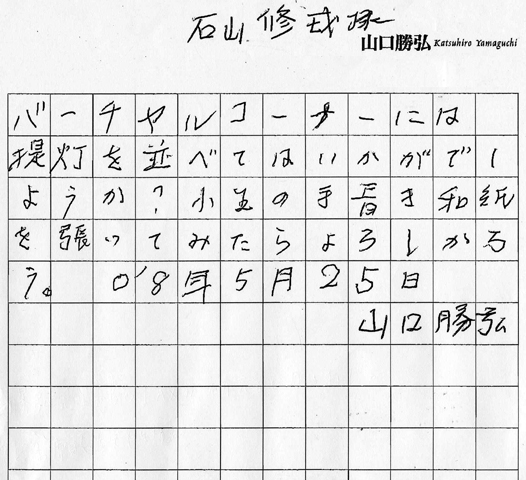 石山修武様
山口勝弘 Katsuhiro Yamaguchi
バーチャルコーナーには
提灯を並べてはいかがでし
ょうか?小生の手書き和紙
を張ってみたらよろしかろ
う。 0'8年5月25日
山口勝弘